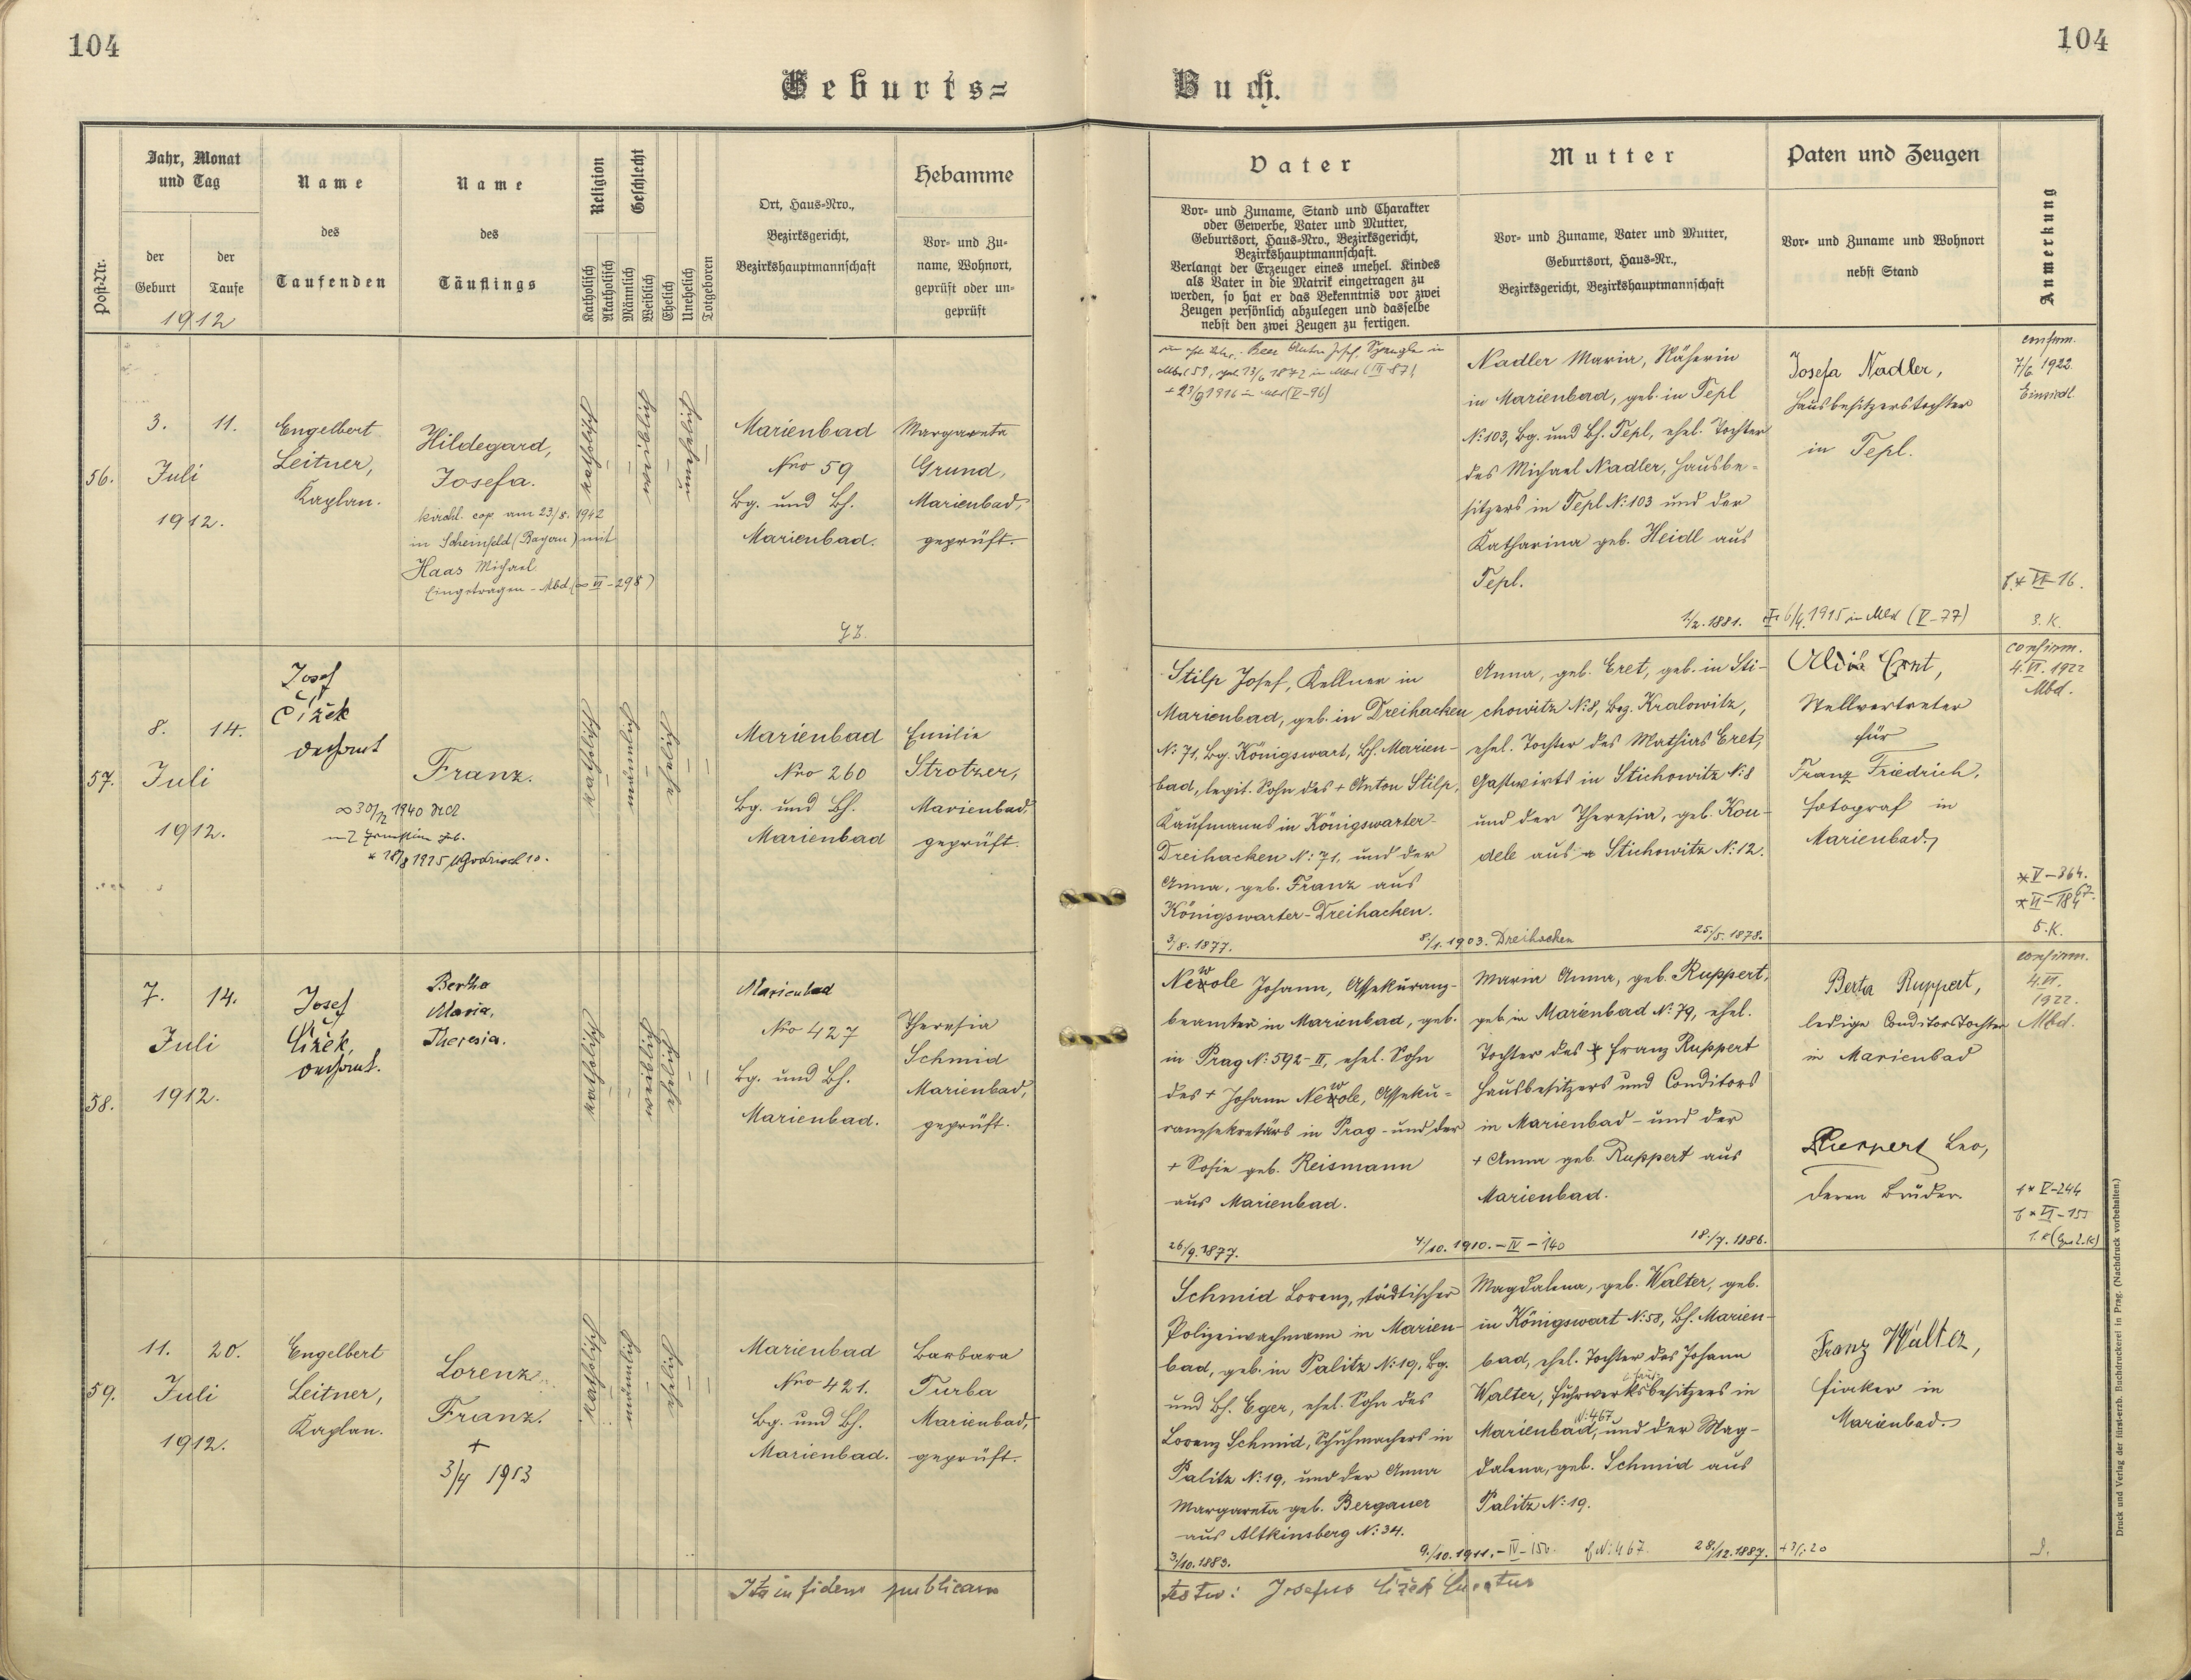 104
104
Geburts=
Buch.
Post-Nr.
Jahr, Monat
und Tag
der
Geburt
der
Taufe
1912
Name
des
Taufenden
Name
des
Täuflings
Religion
Katholisch
Akatholisch
Geschlecht
Männlich
Weiblich
Ehelich
Unehelich
Totgeboren
Ort, Haus-Nro.,
Bezirksgericht,
Bezirkshauptmannschaft
Hebamme
Vor- und Zu-
name, Wohnort,
geprüft oder un-
geprüft
Vater
Vor- und Zuname, Stand und Charakter
oder Gewerbe, Vater und Mutter,
Geburtsort, Haus-Nro., Bezirksgericht,
Bezirkshauptmannschaft.
Verlangt der Erzeuger eines unehel. Kindes
als Vater in die Matrik eingetragen zu
werden, so hat er das Bekenntnis vor zwei
Zeugen persönlich abzulegen und dasselbe
nebst den zwei Zeugen zu fertigen.
Mutter
Vor- und Zuname, Vater und Mutter,
Geburtsort, Haus-Nr.,
Bezirksgericht, Bezirkshauptmannschaft
Paten und Zeugen
Vor- und Zuname und Wohnort
nebst Stand
Anmerkung
56.
3. 11.
Juli
1912.
Engelbert
Leitner,
Kaplan.
Hildegard,
Josefa.
kirchl. cop. am 23/8. 1942
in Scheinfeld (Bayern) mit
Haas Michael
Eingetragen - Mbd (∞ VI - 298)
katholisch
weiblich
unehelich
Marienbad
Nro 59
Bg. und Bh.
Marienbad.
Margareta
Grund,
Marienbad,
geprüft.
Beer Anton Josef, Spengler in
Mbd 59, geb. 13/6 1872 in Mbd (III-87)
+ 23/9 1916 in Mbd (V-96)
Nadler Maria, Näherin
in Marienbad, geb. in Tepl
N: 103, Bg. und Bh. Tepl, ehel. Tochter
des Michael Nadler, Hausbe=
sitzers in Tepl N: 103 und der
Katharina geb. Heidl aus
Tepl.
1/2. 1881.
6/4. 1915 in Mbd (V-77)
Josefa Nadler,
Hausbesitzerstochter
in Tepl.
confirm.
7/6 1922
Einsiedl
VI-16.
3. K.
57.
8. 14.
Juli
1912.
Josef
Čížek
Dechant
Franz.
katholisch
männlich
ehelich
Marienbad
Nro 260
Bg. und Bh.
Marienbad
Emilie
Strotzer,
Marienbad,
geprüft.
Stilp Josef, Kellner in
Marienbad, geb. in Dreihacken
N: 71, Bg. Königswart, Bh. Marien-
bad, legit. Sohn des + Anton Stilp,
Kaufmanns in Königswarter-
Dreihacken N: 71, und der
Anna, geb. Franz aus
Königswarter-Dreihacken.
3/8. 1877.
8./1. 1903. Dreihacken
Anna, geb. Cret, geb. in Sti-
chowitz N: 8, Bez. Kralowitz,
ehel. Tochter des Mathias Cret,
Gastwirts in Stichowitz N: 8
und der Theresia, geb. Kou-
dele aus Stichowitz N: 12.
25/5. 1878.
Stellvertreter
für
Franz Friedrich,
Fotograf in
Marienbad.
confirm.
4. VI. 1922
Mbd.
* V - 364.
5. K.
58.
7. 14.
Juli
1912.
Josef
Čížek,
Dechant.
Bertha
Maria,
Theresia.
katholisch
weiblich
ehelich
Marienbad
Nro 427
Bg. und Bh.
Marienbad.
Theresia
Schmid
Marienbad,
geprüft.
Newole Johann, Assekuranz-
beamter in Marienbad, geb.
in Prag N: 592-II, ehel. Sohn
des + Johann Newole, Asseku=
ranzsekretärs in Prag - und der
+ Sofie geb. Reismann
aus Marienbad.
26/9. 1877.
4/10. 1910. - IV - 140
Maria Anna, geb. Ruppert,
geb. in Marienbad N: 79, ehel.
Tochter des Franz Ruppert
Hausbesitzers und Conditors
in Marienbad - und der
+ Anna geb. Ruppert aus
Marienbad.
18./7. 1886.
Berta Ruppert,
ledige Conditorstochter
in Marienbad
Ruppert Leo,
deren Bruder.
confirm.
4. VI.
1922.
Mbd.
* V-244
59.
11. 20.
Juli
1912.
Engelbert
Leitner,
Kaplan.
Lorenz
Franz.
+
3/4 1913
katholisch
männlich
ehelich
Marienbad
Nro 421.
Bg. und Bh.
Marienbad.
Barbara
Turba
Marienbad,
geprüft.
Schmid Lorenz, städtischer
Polizeiwachmann in Marien-
bad, geb. in Palitz N: 19, Bg.
und Bh. Eger, ehel. Sohn des
Lorenz Schmid, Schuhmachers in
Palitz N: 19, und der Anna
Margareta geb. Bergauer
aus Altkinsberg N: 34.
3/10. 1883.
9./10. 1911. - IV - 150.
N: 467.
Magdalena, geb. Walter, geb.
in Königswart N: 58, Bh. Marien-
bad, ehel. Tochter des Johann
Walter, Fuhrwerksbesitzers in
Marienbad, N: 467 und der Mag-
dalena, geb. Schmid aus
Palitz N: 19.
28./12. 1887.
Franz Walter,
Fiaker in
Marienbad.
Ita in fidem publicam
testor: Josefus Čížek
Druck und Verlag der fürst-erzb. Buchdruckerei in Prag. (Nachdruck vorbehalten.)